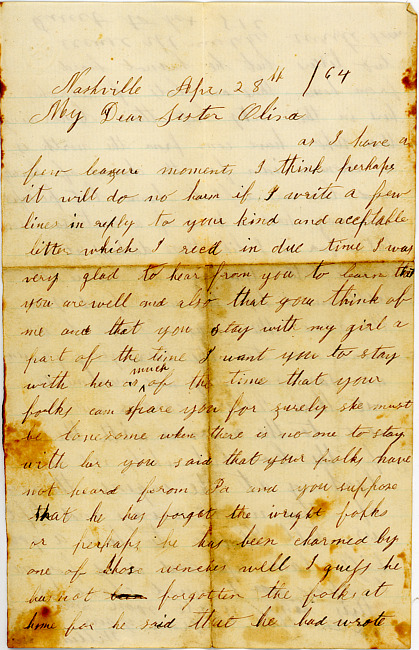 Nashville Apr, 28th /64
My Dear Sister Olina
as I have a
few leasure moments I think perhaps
it will do no harm if I write a few
lines in reply to your kind and aceptable
litter which I recd in due time I was
very glad to hear from you to learn that
you are well and also that you think of
me and that you stay with my girl a
part of the time I want you to stay
with her as much of the time that your
folks can spare you for surely she must
be lonesome when there is no one to stay
with her you said that your folks have
not heard from Pa and you suppose
that he has forgot the wright folks
or perhaps he has been charmed by
one of those wenches well I guess he
has not forgotten the folks at
home for he said that he had wrote